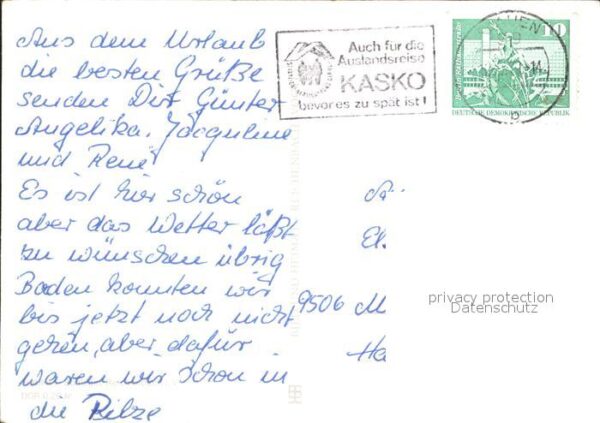 Aus dem Urlaub
die besten Grüße
senden Dir Günter
Angelika, Jacqueline
und René
Es ist hier schön
aber das Wetter läßt
zu wünschen übrig
Baden konnten wir
bis jetzt noch nicht
gehen, aber dafür
waren wir schon in
die Pilze
Auch für die
Auslandsreise
KASKO
bevor es zu spät ist!
10
DEUTSCHE DEMOKRATISCHE REPUBLIK
El.
9506 M
Ha
privacy protection
Datenschutz